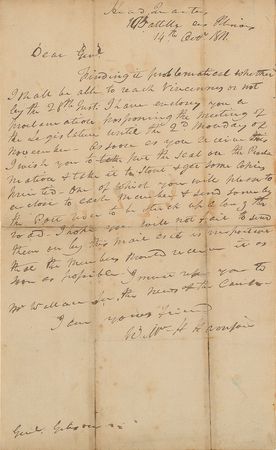 Head Quarters
14th Octr. 1811
Dear Genl.
Finding it problematical whether
I shall be able to reach Vincennes or not
by the 28th Inst. I have enclosed you a
proclamation postponing the meeting of
the Legislature until the 2nd Monday of
November. As soon as you receive this
I wish you to put the Seal on the Proclamation
& take it to Stout & get some copies
printed. One of which you will please to
enclose to each Member & send some by
the Post rider to be struck up along the
road. I hope you will not fail to send
them on by this mail as it is important
that the Members should receive it as
soon as possible. I must refer you to
Mr Wallace for the news of the Camp.
I am yours friend
Willm. H Harrison
Genl. Gibson